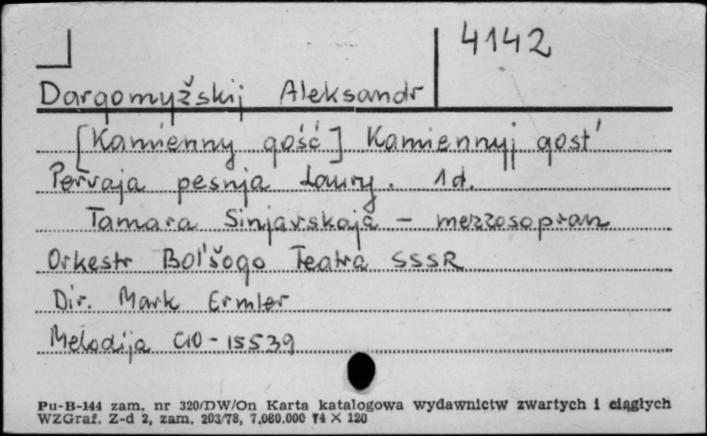 4142
Dargomyžskij Aleksandr
[Kamienny gość] Kamiennyj gost'
Pervaja pesnja Laury. 1d.
Tamara Sinjavskaja - mezzosopran
Orkestr Bol'šogo Teatra SSSR
Dir. Mark Ermler
Melodija C10-15539
Pu-B-144 zam. nr 320/DW/On Karta katalogowa wydawnictw zwartych i ciągłych
WZGraf. Z-d 2, zam. 203/78, 7.080.000 74 X 120